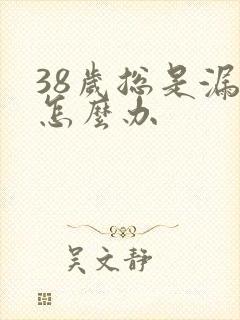 38歲總是漏
怎麼办
吴文靜